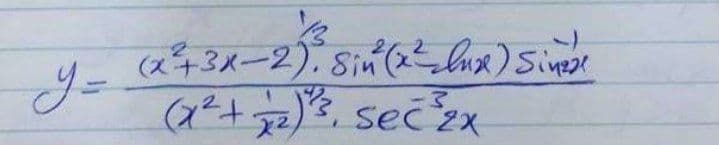 y = \frac{(x^2+3x-2)^{1/3} . Sin^2(x^2-lnx) Sin^{-1}2x}{(x^2+\frac{1}{x^2})^{4/3} . sec^{-3}2x}